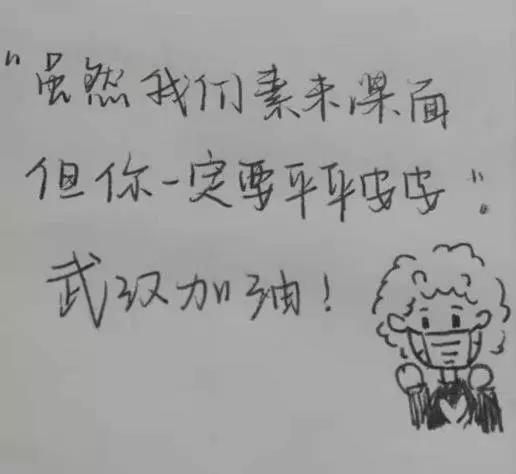 "虽然我们素未谋面
但你一定要平平安安"。
武汉加油!